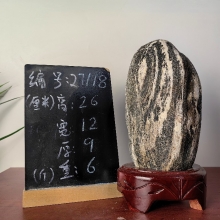 编号:27118
(厘米)高:26
宽:12
厚:9
(斤)重:6